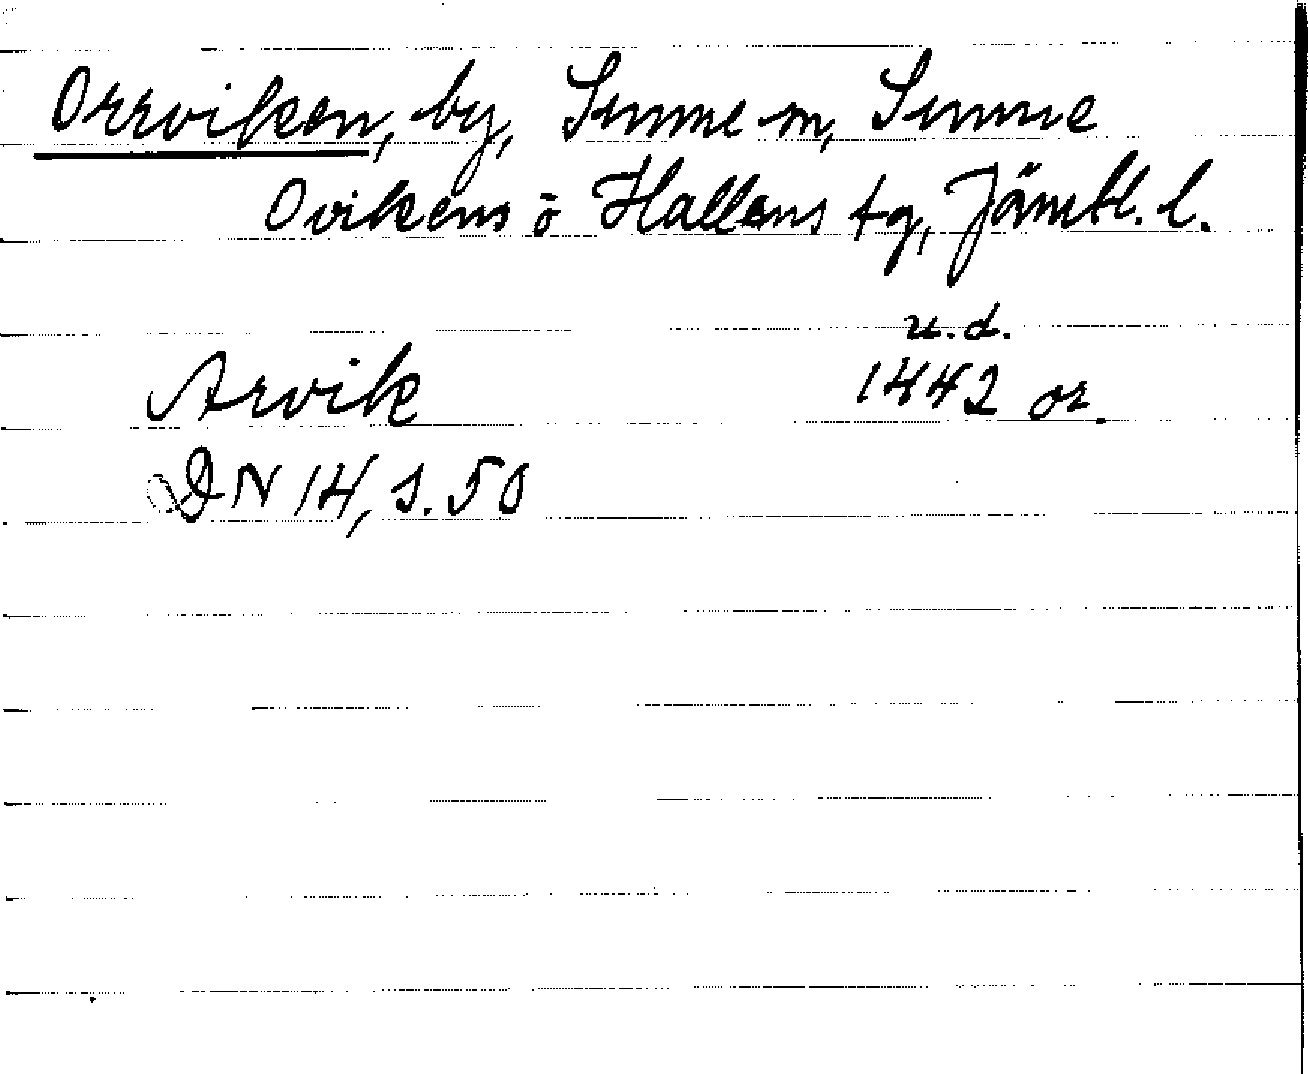 Orrviken, by, Sunne sn, Sunne
Ovikens o Hallens tg, Jämtl. l.
u.d.
Arvik 1442 or.
DN 14, s. 50